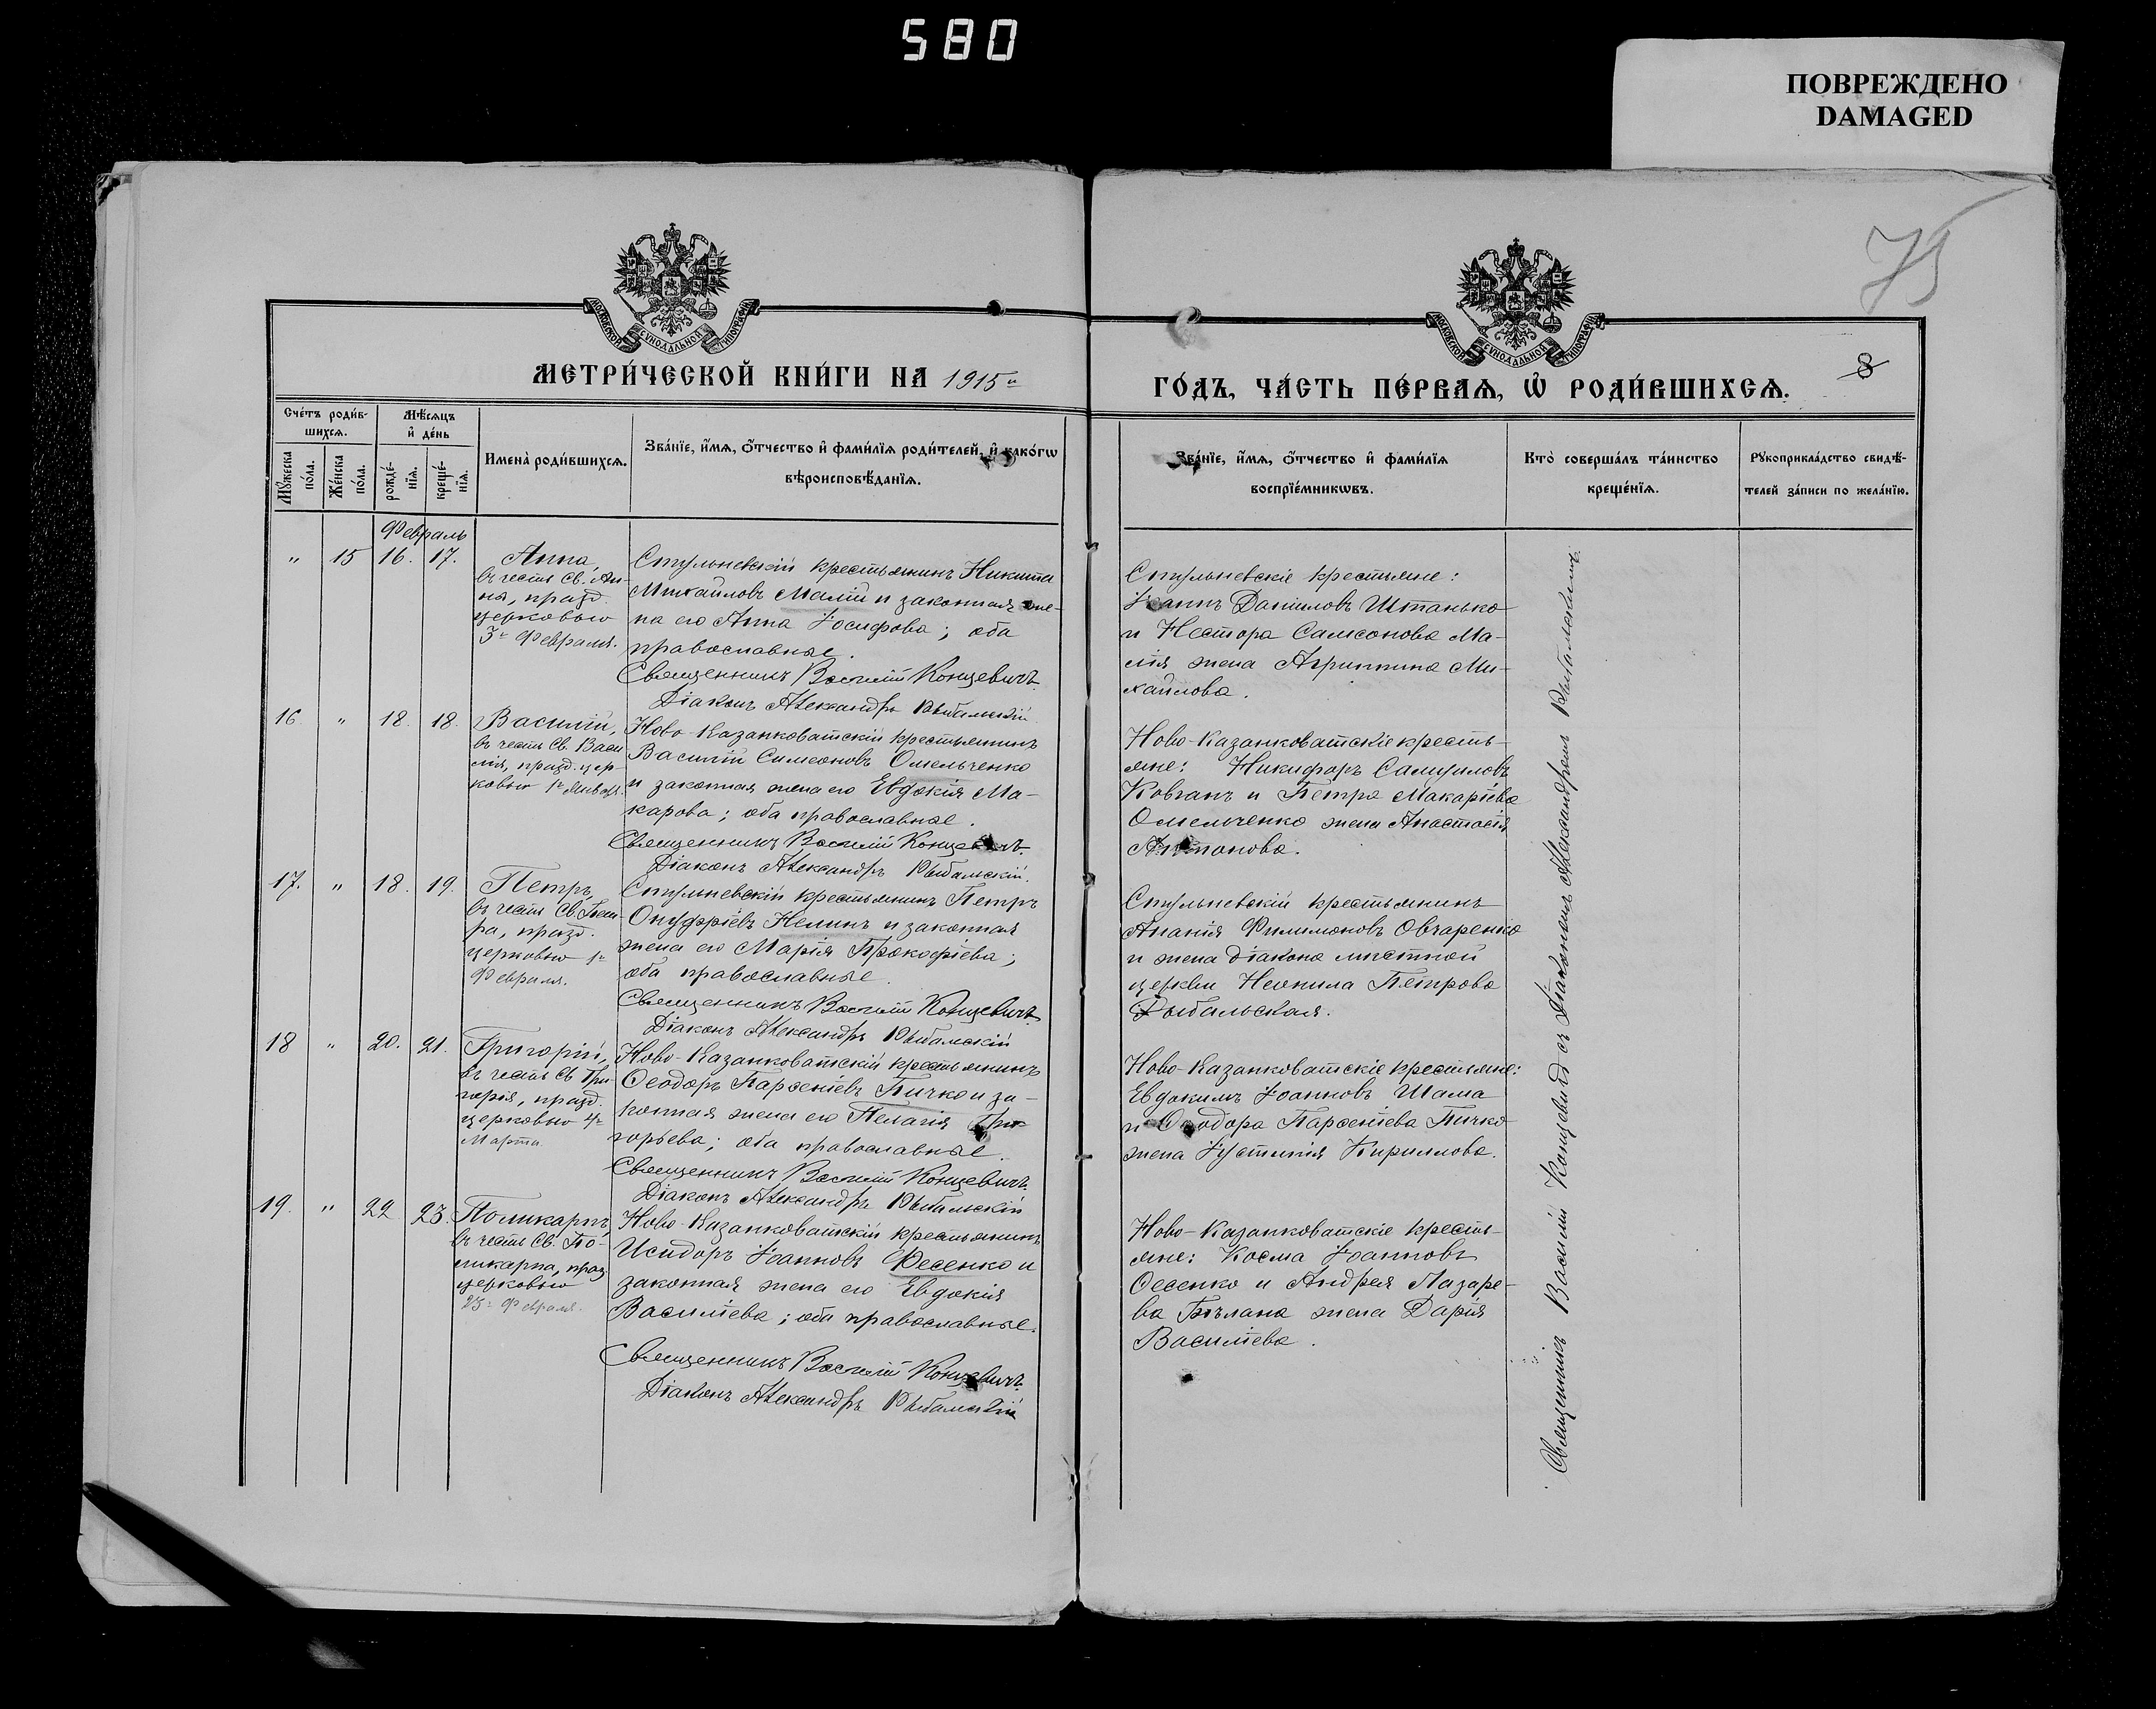 580
ПОВРЕЖДЕНО
DAMAGED
75
8
МОСКОВСКОЙ СѴНОДАЛЬНОЙ ТИПОГРАФІИ
МОСКОВСКОЙ СѴНОДАЛЬНОЙ ТИПОГРАФІИ
МЕТРИ́ЧЕСКОЙ КНИ́ГИ НА 1915й
ГО́ДЪ, ЧА́СТЬ ПЕ́РВАѦ, Ѡ҆ РОДИ́ВШИХСѦ.
Сче́тъ роди́в-
шихсѧ.
Мꙋ́жеска по́ла.
Же́нска по́ла.
Мѣ́сѧцъ
и҆ де́нь
рожде́-
нїѧ.
креще́-
нїѧ.
Имена̀ роди́вшихсѧ.
Зва́нїе, и҆́мѧ, ѻ҆́тчество и҆ фами́лїѧ роди́телей, и҆ како́гѡ
вѣроисповѣ́данїѧ.
Зва́нїе, и҆́мѧ, ѻ҆́тчество и҆ фами́лїѧ
воспрїе́мникѡвъ.
Кто̀ соверша́лъ та́инство
креще́нїѧ.
Рꙋкоприкла́дство свидѣ́-
телей за́писи по жела́нїю.
Февраль
" 15 16. 17.
Анна,
въ честь Св. Ан-
ны, празд.
церковью
3го Февраля.
Стульневскій крестьянинъ Никита
Михаиловъ Малій и законная же-
на его Анна Іосифова; оба
православные.
Священникъ Василій Концевичъ.
Діаконъ Александръ Рыбальскій
Стульневскіе крестьяне:
Іоаннъ Даніиловъ Штанько
и Нестора Самсонова Ма-
лія жена Агриппина Ми-
хайлова.
16. " 18. 18.
Василій,
въ честь Св. Васи
лія, празд. цер-
ковью 1го Января.
Ново-Казанковатскій крестьянинъ
Василій Симеоновъ Омельченко
и законная жена его Евдокія Ма-
карова; оба православные.
Священникъ Василій Концевичъ.
Діаконъ Александръ Рыбальскій.
Ново-Казанковатскіе кресть-
яне: Никифоръ Самуиловъ
Ковганъ и Петра Макаріева
Омельченко жена Анастасія
Антонова.
17. " 18. 19.
Петръ,
въ честь Св. Пет-
ра, празд.
церковью 1го
Февраля.
Стульневскій крестьянинъ Петръ
Онуфріевъ Нелинъ и законная
жена его Марія Прокофіева;
оба православные.
Священникъ Василій Концевичъ.
Діаконъ Александръ Рыбальскій
Стульневскій крестьянинъ
Ананія Филимоновъ Овчаренко
и жена діакона мѣстной
церкви Неонила Петрова
Рыбальская.
18 " 20. 21.
Григорій,
въ честь Св. Гри-
горія, празд.
церковью 4го
Марта.
Ново-Казанковатскій крестьянинъ
Ѳеодоръ Парѳеніевъ Пичко и за-
конная жена его Пелагія Гри-
горьева; оба православные.
Священникъ Василій Концевичъ.
Діаконъ Александръ Рыбальскій
Ново-Казанковатскіе крестьяне:
Евдокимъ Іоанновъ Шама
и Ѳеодора Парѳеніева Пичко
жена Іустинія Кириллова.
19. " 22 23.
Поликарпъ,
въ честь Св. По-
ликарпа, празд.
церковью
23го Февраля.
Ново-Казанковатскій крестьянинъ
Исидоръ Іоанновъ Ѳесенко и
законная жена его Евдокія
Василіева; оба православные.
Священникъ Василій Концевичъ.
Діаконъ Александръ Рыбальскій
Ново-Казанковатскіе кресть-
яне: Косма Іоанновъ
Ѳесенко и Андрея Лазаре-
ва Бѣлана жена Дарія
Василіева.
Священникъ Василій Концевичъ съ Діакономъ Александромъ Рыбальскимъ.